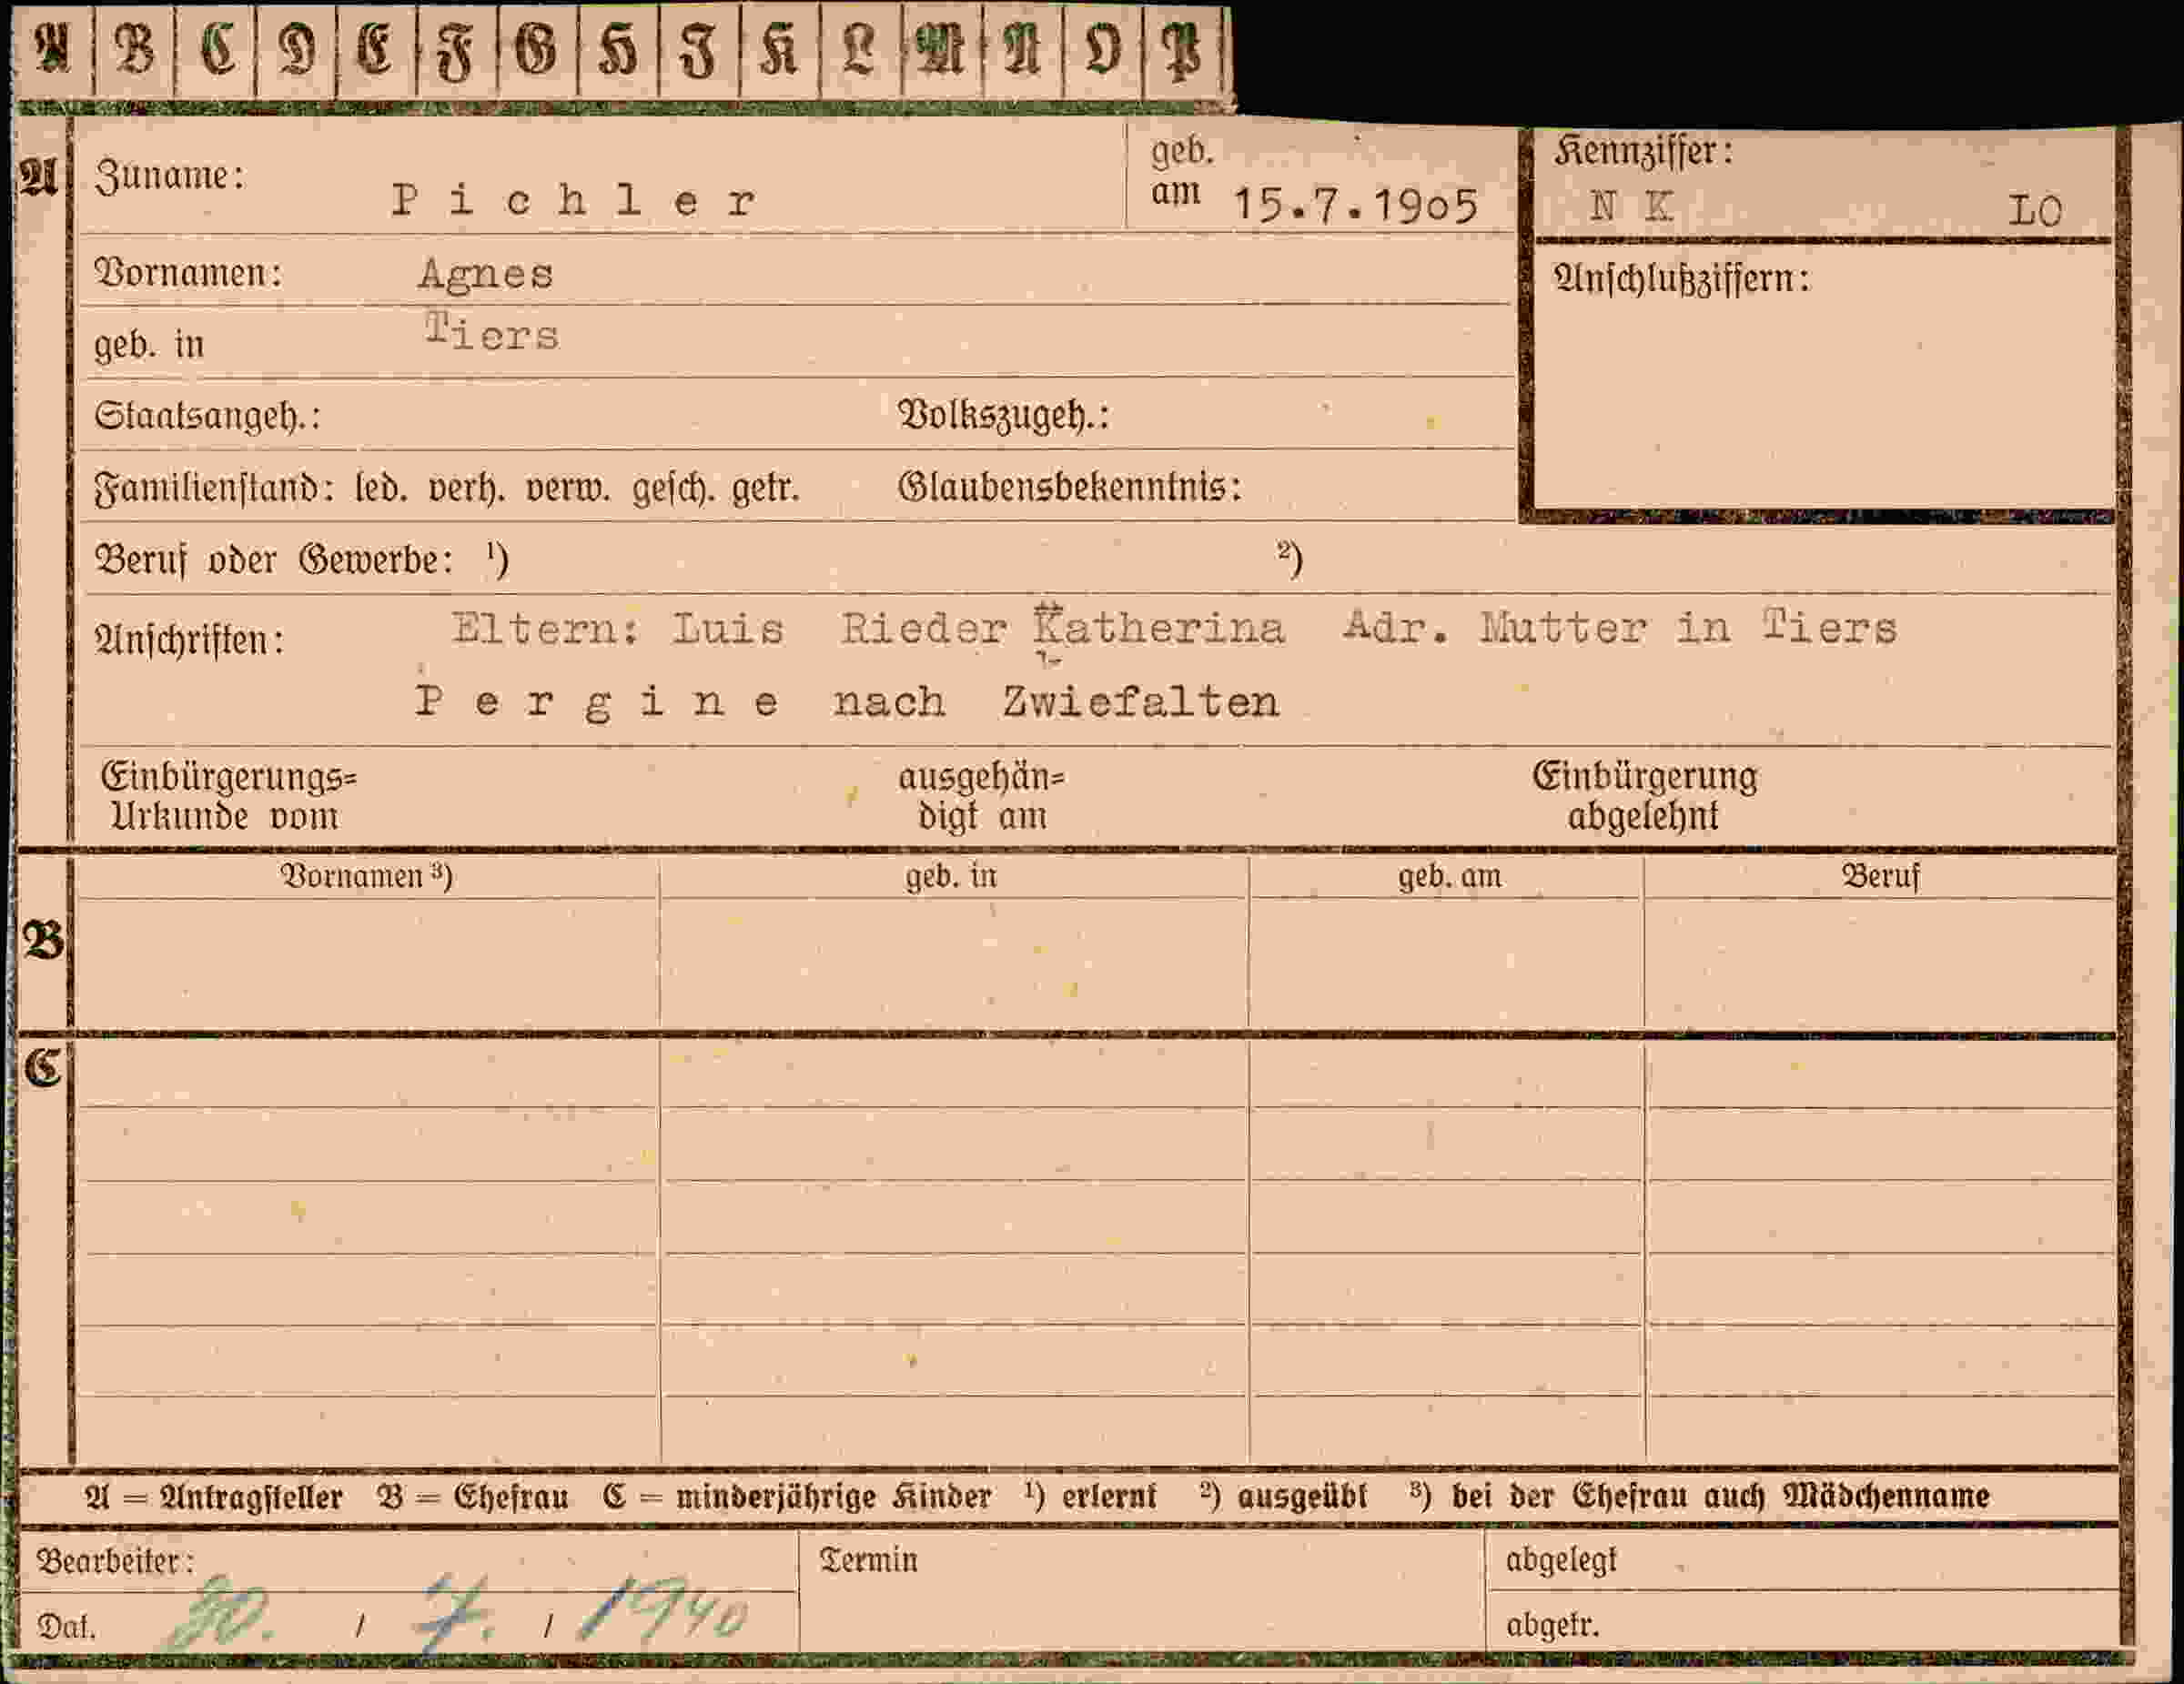 A B C D E F G H J K L M N O P
A Zuname: Pichler geb. am 15.7.19o5 Kennziffer: N K LO
Vornamen: Agnes Anschlußziffern:
geb. in Tiers
Staatsangeh.: Volkszugeh.:
Familienstand: led. verh. verw. gesch. getr. Glaubensbekenntnis:
Beruf oder Gewerbe: ¹) ²)
Anschriften: Eltern: Luis Rieder Katherina Adr. Mutter in Tiers
Pergine nach Zwiefalten
Einbürgerungs= ausgehän= Einbürgerung
Urkunde vom digt am abgelehnt
Vornamen ³) geb. in geb. am Beruf
B
C
A = Antragsteller B = Ehefrau C = minderjährige Kinder ¹) erlernt ²) ausgeübt ³) bei der Ehefrau auch Mädchenname
Bearbeiter: Termin abgelegt
Dat. 30. / 7. / 1940 abgetr.